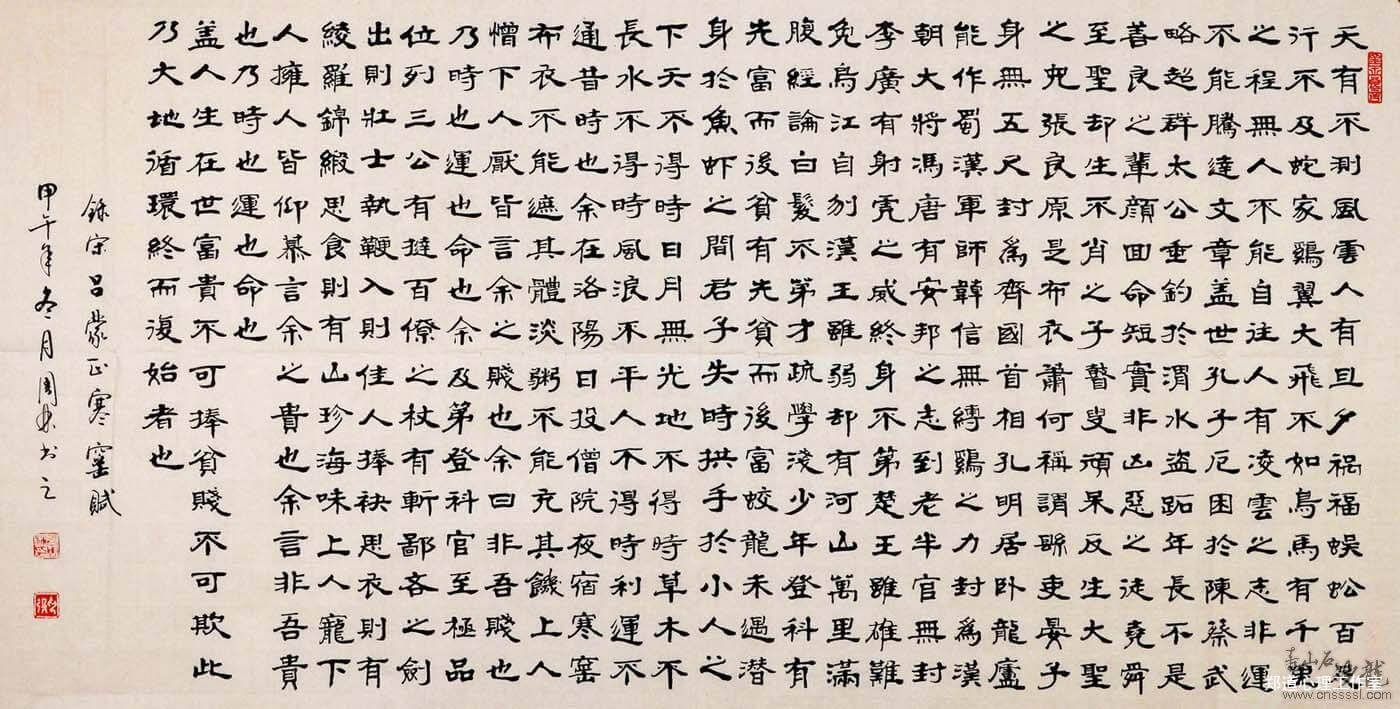 天有不測風雲人有旦夕祸福蜈蚣百
行不及蛇家鷄翼大飛不如鳥馬有千
之程無人不能自往人有凌雲之志非運
不能騰達文章盖世孔子厄困於陳蔡武
略超群太公垂釣於渭水盗跖年長不是
善良之輩顔回命短實非凶惡之徒堯舜
至聖却生不肖之子瞽叟頑呆反生大聖
之兒張良原是布衣蕭何稱謂縣吏晏子
身無五尺封為齊國首相孔明居卧龍廬
能作蜀漢軍師韓信無縛鷄之力封為漢
朝大將馮唐有安邦之志到老半官無封
李廣有射虎之威終身不第楚王雖雄難
免烏江自刎漢王雖弱却有河山萬里滿
腹經論白髮不第才疏學淺少年登科有
先富而後貧有先貧而後富蛟龍未遇潜
身於魚虾之間君子失時拱手於小人之
下天不得時日月無光地不得時草木不
長水不得時風浪不平人不得時利運不
通昔時也余在洛陽日投僧院夜宿寒窑
布衣不能遮其體淡粥不能充其饑上人
憎下人厭皆言余之賤也余曰非吾賤也
乃時也運也命也余及第登科官至極品
位列三公有撻百僚之杖有斬鄙吝之劍
出則壯士執鞭入則佳人捧袂思衣則有
綾羅錦緞思食則有山珍海味上人寵下
人擁人皆仰慕言余之貴也余言非吾貴
也乃時也運也命也
盖人生在世富貴不可捧貧賤不可欺此
乃大地循環終而復始者也
錄宋吕蒙正寒窑賦
甲午年冬月周书之
郑道心理工作室
www.cnssssl.com